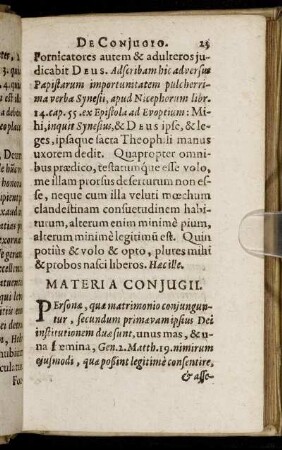 DE CONJUGIO. 25
Fornicatores autem & adulteros ju-
dicabit DEUS. Adscribam hic adversus
Papistarum importunitatem pulcherri-
ma verba Synesii, apud Nicephorum libr.
14. cap. 55. ex Epistola ad Evoptium: Mi-
hi, inquit Synesius, & DEUS ipse, & le-
ges, ipsaque sacra Theophili manus
uxorem dedit. Quapropter omni-
bus prædico, testatumque esse volo,
me illam prorsus deserturum non es-
se, neque cum illa veluti mœchum
clandestinam consuetudinem habi-
turum, alterum enim minimè pium,
alterum minimè legitimū est. Quin
potiùs & volo & opto, plures mihi
& probos nasci liberos. Hæc ille.
MATERIA CONJUGII.
Personæ, quæ matrimonio conjungun-
tur, secundum primævam ipsius Dei
institutionem duæ sunt, unus mas, & u-
na fœmina, Gen. 2. Matth. 19. nimirum
ejusmodi, quæ possint legitimè consentire,
& asse-